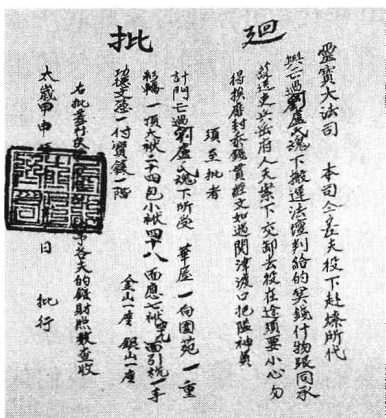 迴批
靈寶大法司 本司今差夫役下赴煉所代
與亡過劉盧氏魂下搬運法壇判給的冥錢什物跟同承
送更與岳府人夫案下交卸去役在途須要小心勿
得損封錢貫經文如過關津渡口把隘神員
須至批者
計開亡過劉盧氏魂下所受 華屋一向園苑一重
轎一頂大袱二十四包小袱四十八面應七袱面引一手
一付寶錢一階 金山一座 銀山一座
右批差夫等各夫的錢財照數查收
太歲甲申日 批行